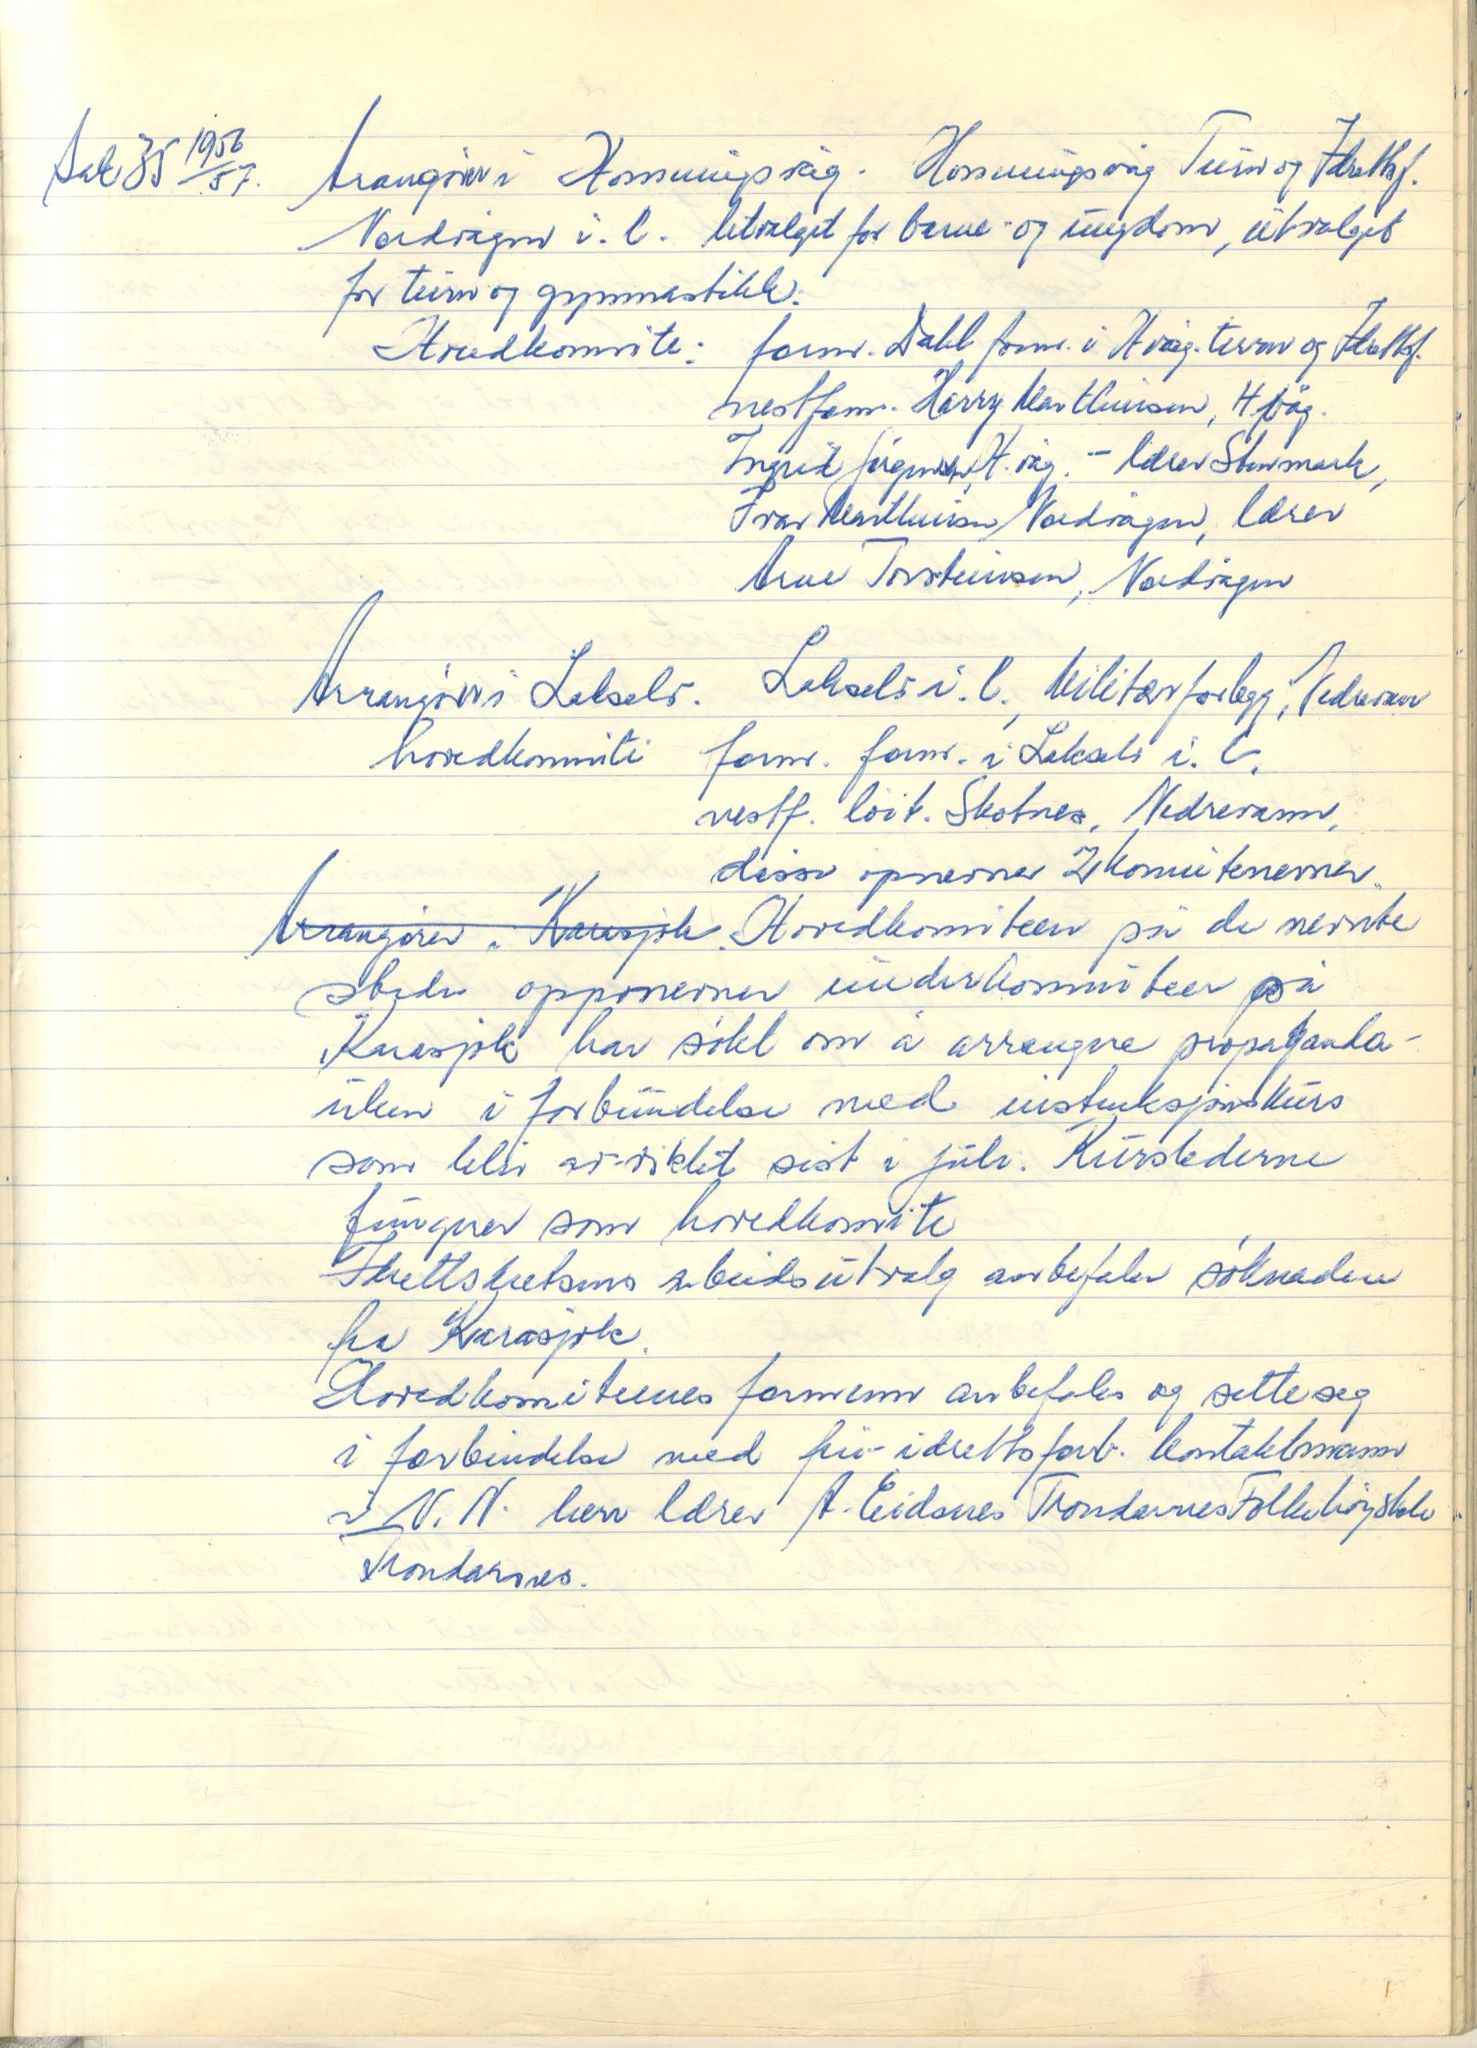 Sak 35 1956/57. Arangører i Honningsvåg. Honningsvåg Turn og Idrettsf.
Nordvågen i. l. Utvalget for barne- og ungdom, utvalget
for turn og gymnastikk.
Hovedkomite: form. Dahl form. i H.våg. turn og Idrettsf.
nestform. Harry Marthinsen, H.våg.
Ingrid Jørgensen, H.våg. - lærer Stenmark,
Ivar Marthinsen Nordvågen, lærer
Arne Torsteinsen, Nordvågen
Arrangører i Lakselv. Lakselv i. l., Militærforlegg, Nedrevann
hovedkomite form. form. i Lakselv i. l.
nestf. løit. Skotnes, Nedrevann,
disse opnevner komitenevner.
Arrangører i Karasjok. Hovedkomiteen på de nevnte
steder oppnevner underkomiteer på
Karasjok har søkt om å arrangere propaganda-
uken i forbindelse med instruksjonskurs
som blir avviklet sist i juli. Kurslederne
fungerer som hovedkomite
Idrettskretsens arbeidsutvalg anbefaler søknaden
fra Karasjok.
Hovedkomiteenes formenn anbefales og sette seg
i forbindelse med fri-idrettsforb. kontaktmann
i N. N. herr lærer A. Eidsnes Trondarnes Folkehøyskole
Trondarnes.